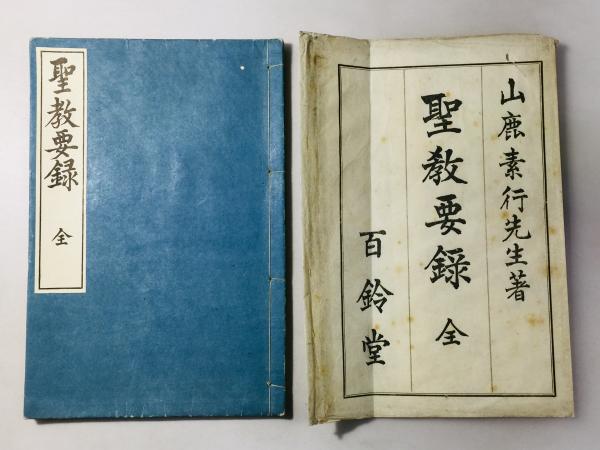 聖教要録
全
山鹿素行先生著
聖教要録 全
百鈴堂